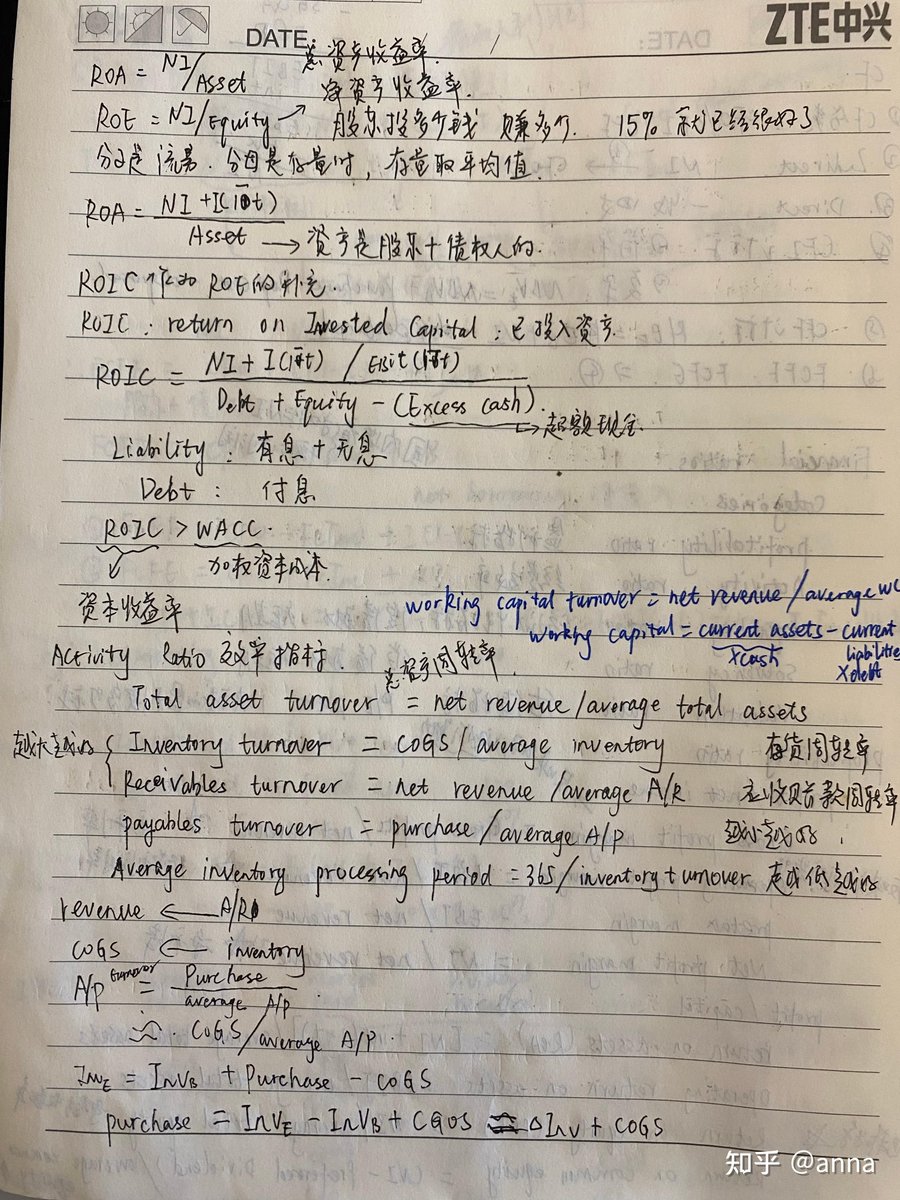 ZTE中兴
DATE:
总资产收益率.
ROA = NI/Asset
净资产收益率.
ROE = NI/Equity → 股东投多少钱 赚多少. 15% 就已经很好了
分子是流量. 分母是存量时, 存量取平均值.
ROA = NI + I(1-t) / Asset → 资产是股东+债权人的.
ROIC 作为 ROE的补充.
ROIC : return on Invested Capital : 已投入资产.
ROIC = NI + I(1-t) / EBit(1-t)
Debt + Equity - (Excess cash). → 超额现金.
Liability : 有息 + 无息
Debt : 付息
ROIC > WACC.
加权资本成本.
资本收益率
working capital turnover = net revenue / average WC
working capital = current assets - current liabilities
xcash xdebt
Activity Ratio 效率指标.
总资产周转率
Total asset turnover = net revenue / average total assets
越大越好 { Inventory turnover = COGS / average inventory 存货周转率
Receivables turnover = net revenue / average A/R 应收账款周转率
payables turnover = purchase / average A/P 越小越好.
Average inventory processing period = 365 / inventory turnover 越低越好
revenue ← A/R
COGS ← inventory
A/P turnover = Purchase / average A/P.
≈ COGS / average A/P.
InvE = InvB + Purchase - COGS
purchase = InvE - InvB + CGOS = ΔInv + COGS
知乎 @anna